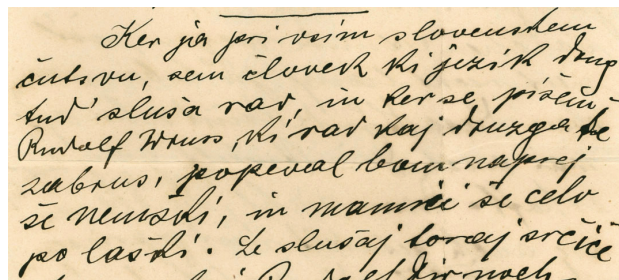 Ker ja pri vsim slovenskem
čutstvu, sem človek ki jezik drug
tud' sluša rad, in ker se pišem
Rudolf Wruss, ki rad kaj druzga še
zabrus, popeval bom naprej
še nemški, in mamici še celo
po laški. Le slušaj toraj srčice
Rudolf dir noch